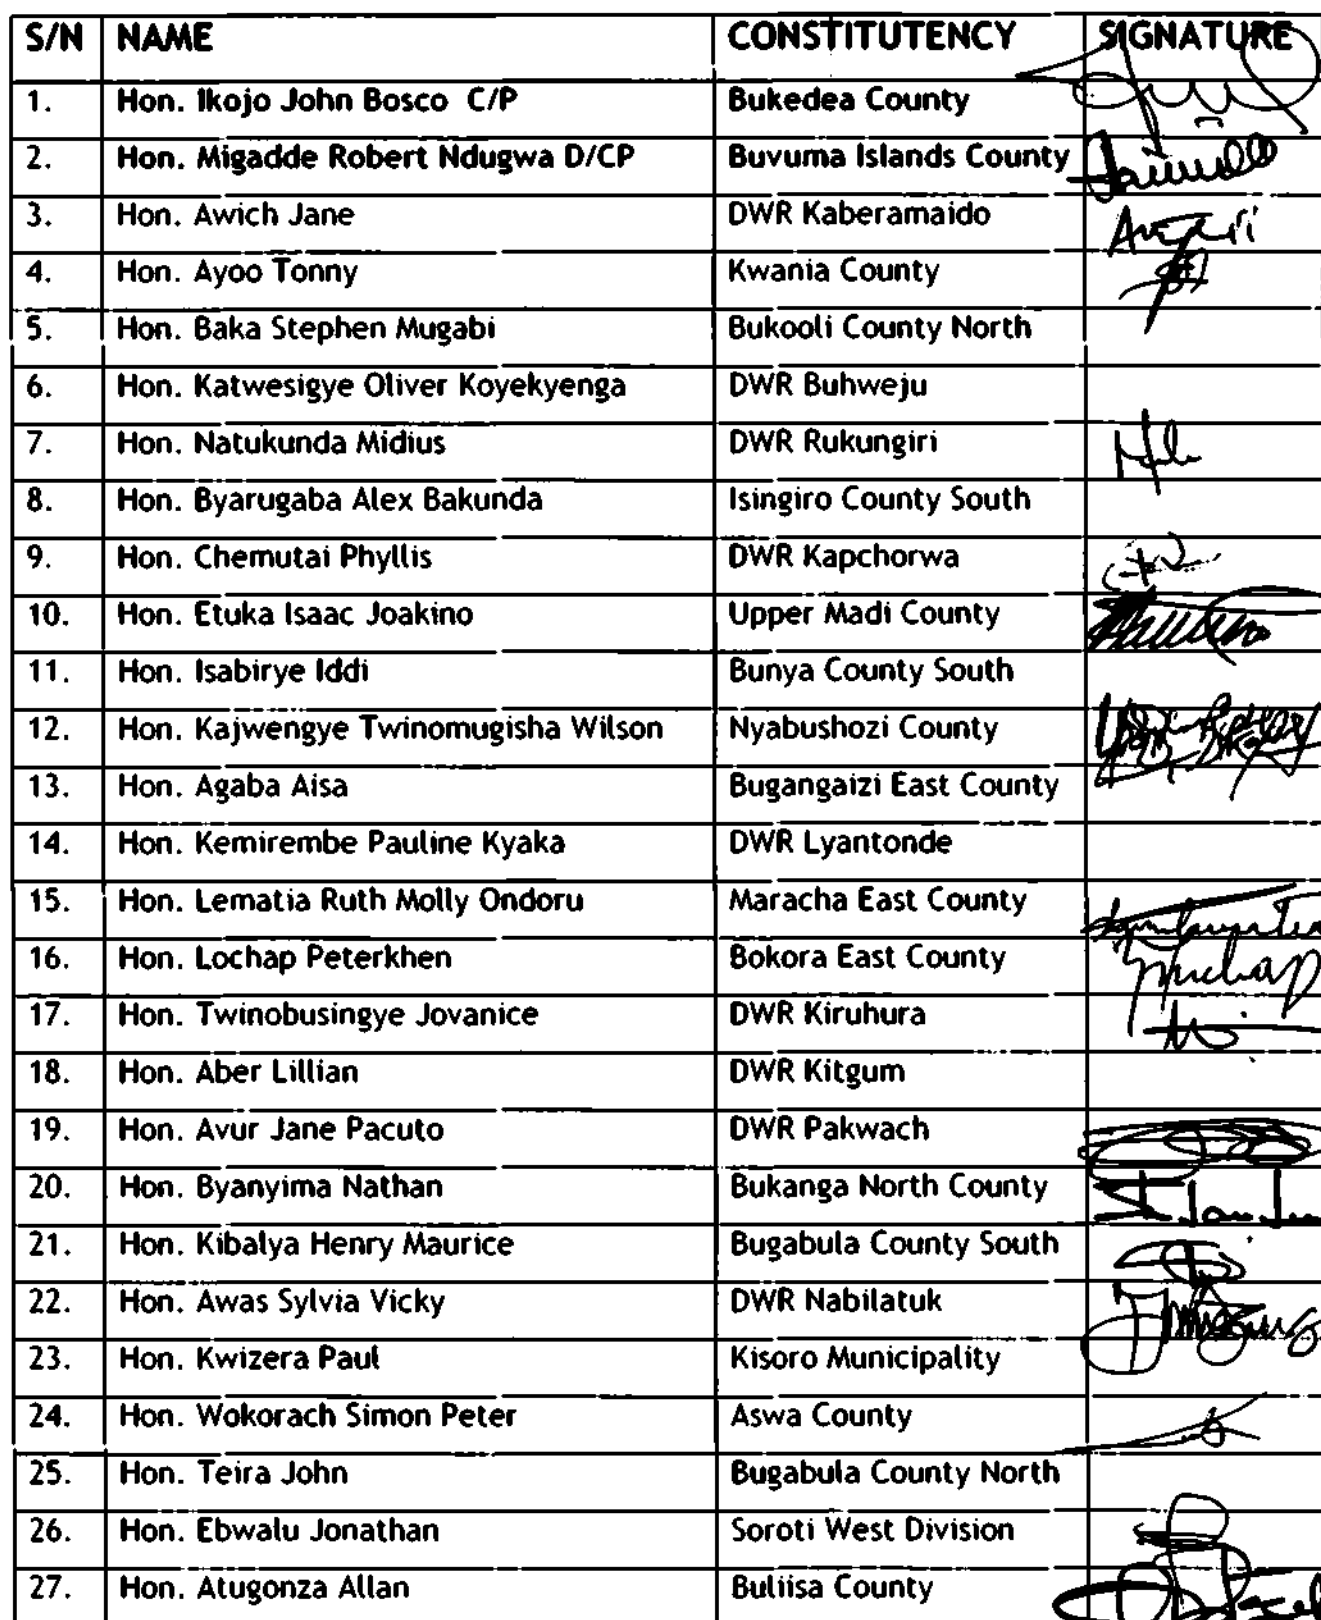 S/N NAME CONSTITUTENCY SIGNATURE
1. Hon. Ikojo John Bosco C/P Bukedea County
2. Hon. Migadde Robert Ndugwa D/CP Buvuma Islands County
3. Hon. Awich Jane DWR Kaberamaido
4. Hon. Ayoo Tonny Kwania County
5. Hon. Baka Stephen Mugabi Bukooli County North
6. Hon. Katwesigye Oliver Koyekyenga DWR Buhweju
7. Hon. Natukunda Midius DWR Rukungiri
8. Hon. Byarugaba Alex Bakunda Isingiro County South
9. Hon. Chemutai Phyllis DWR Kapchorwa
10. Hon. Etuka Isaac Joakino Upper Madi County
11. Hon. Isabirye Iddi Bunya County South
12. Hon. Kajwengye Twinomugisha Wilson Nyabushozi County
13. Hon. Agaba Aisa Bugangaizi East County
14. Hon. Kemirembe Pauline Kyaka DWR Lyantonde
15. Hon. Lematia Ruth Molly Ondoru Maracha East County
16. Hon. Lochap Peterkhen Bokora East County
17. Hon. Twinobusingye Jovanice DWR Kiruhura
18. Hon. Aber Lillian DWR Kitgum
19. Hon. Avur Jane Pacuto DWR Pakwach
20. Hon. Byanyima Nathan Bukanga North County
21. Hon. Kibalya Henry Maurice Bugabula County South
22. Hon. Awas Sylvia Vicky DWR Nabilatuk
23. Hon. Kwizera Paul Kisoro Municipality
24. Hon. Wokorach Simon Peter Aswa County
25. Hon. Teira John Bugabula County North
26. Hon. Ebwalu Jonathan Soroti West Division
27. Hon. Atugonza Allan Buliisa County